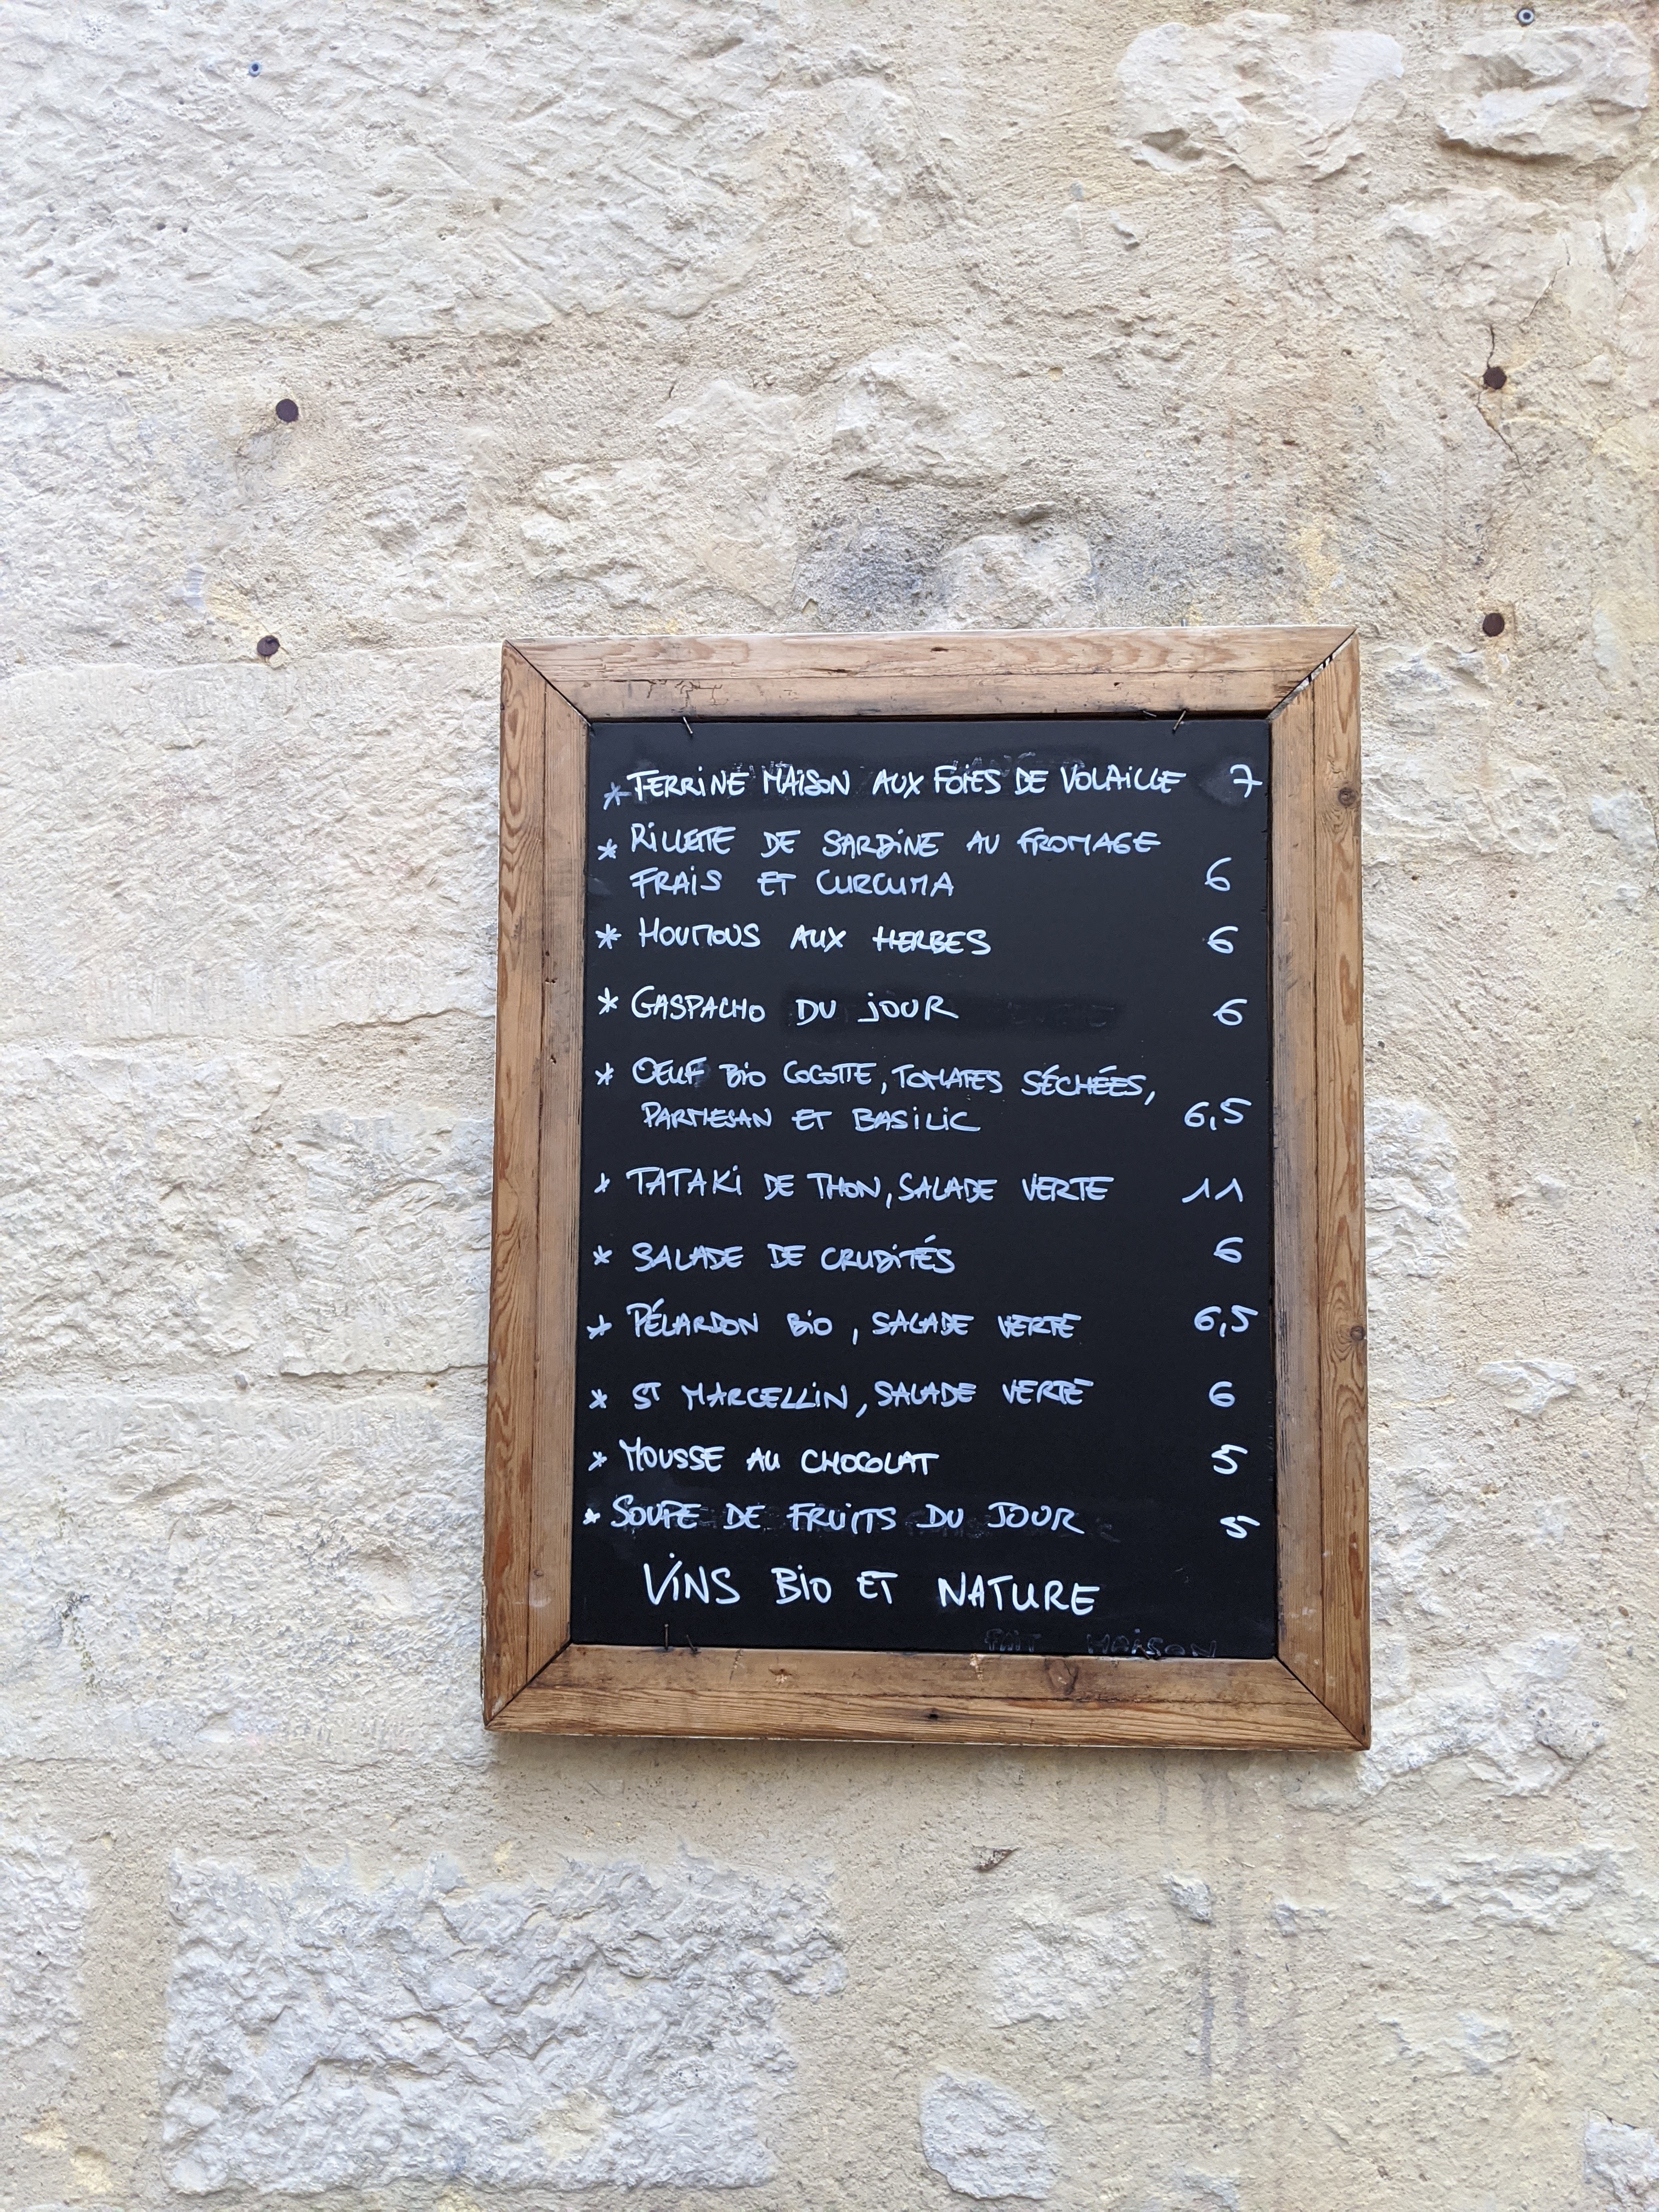 * TERRINE MAISON AUX FOIES DE VOLAILLE 7
* RILLETTE DE SARDINE AU FROMAGE
FRAIS ET CURCUMA 6
* HOUMOUS AUX HERBES 6
* GASPACHO DU JOUR 6
* OEUF BIO COCOTTE, TOMATES SÉCHÉES,
PARMESAN ET BASILIC 6,5
* TATAKI DE THON, SALADE VERTE 11
* SALADE DE CRUDITÉS 6
* PÉLARDON BIO, SALADE VERTE 6,5
* ST MARCELLIN, SALADE VERTE 6
* MOUSSE AU CHOCOLAT 5
* SOUPE DE FRUITS DU JOUR 5
VINS BIO ET NATURE
FAIT MAISON